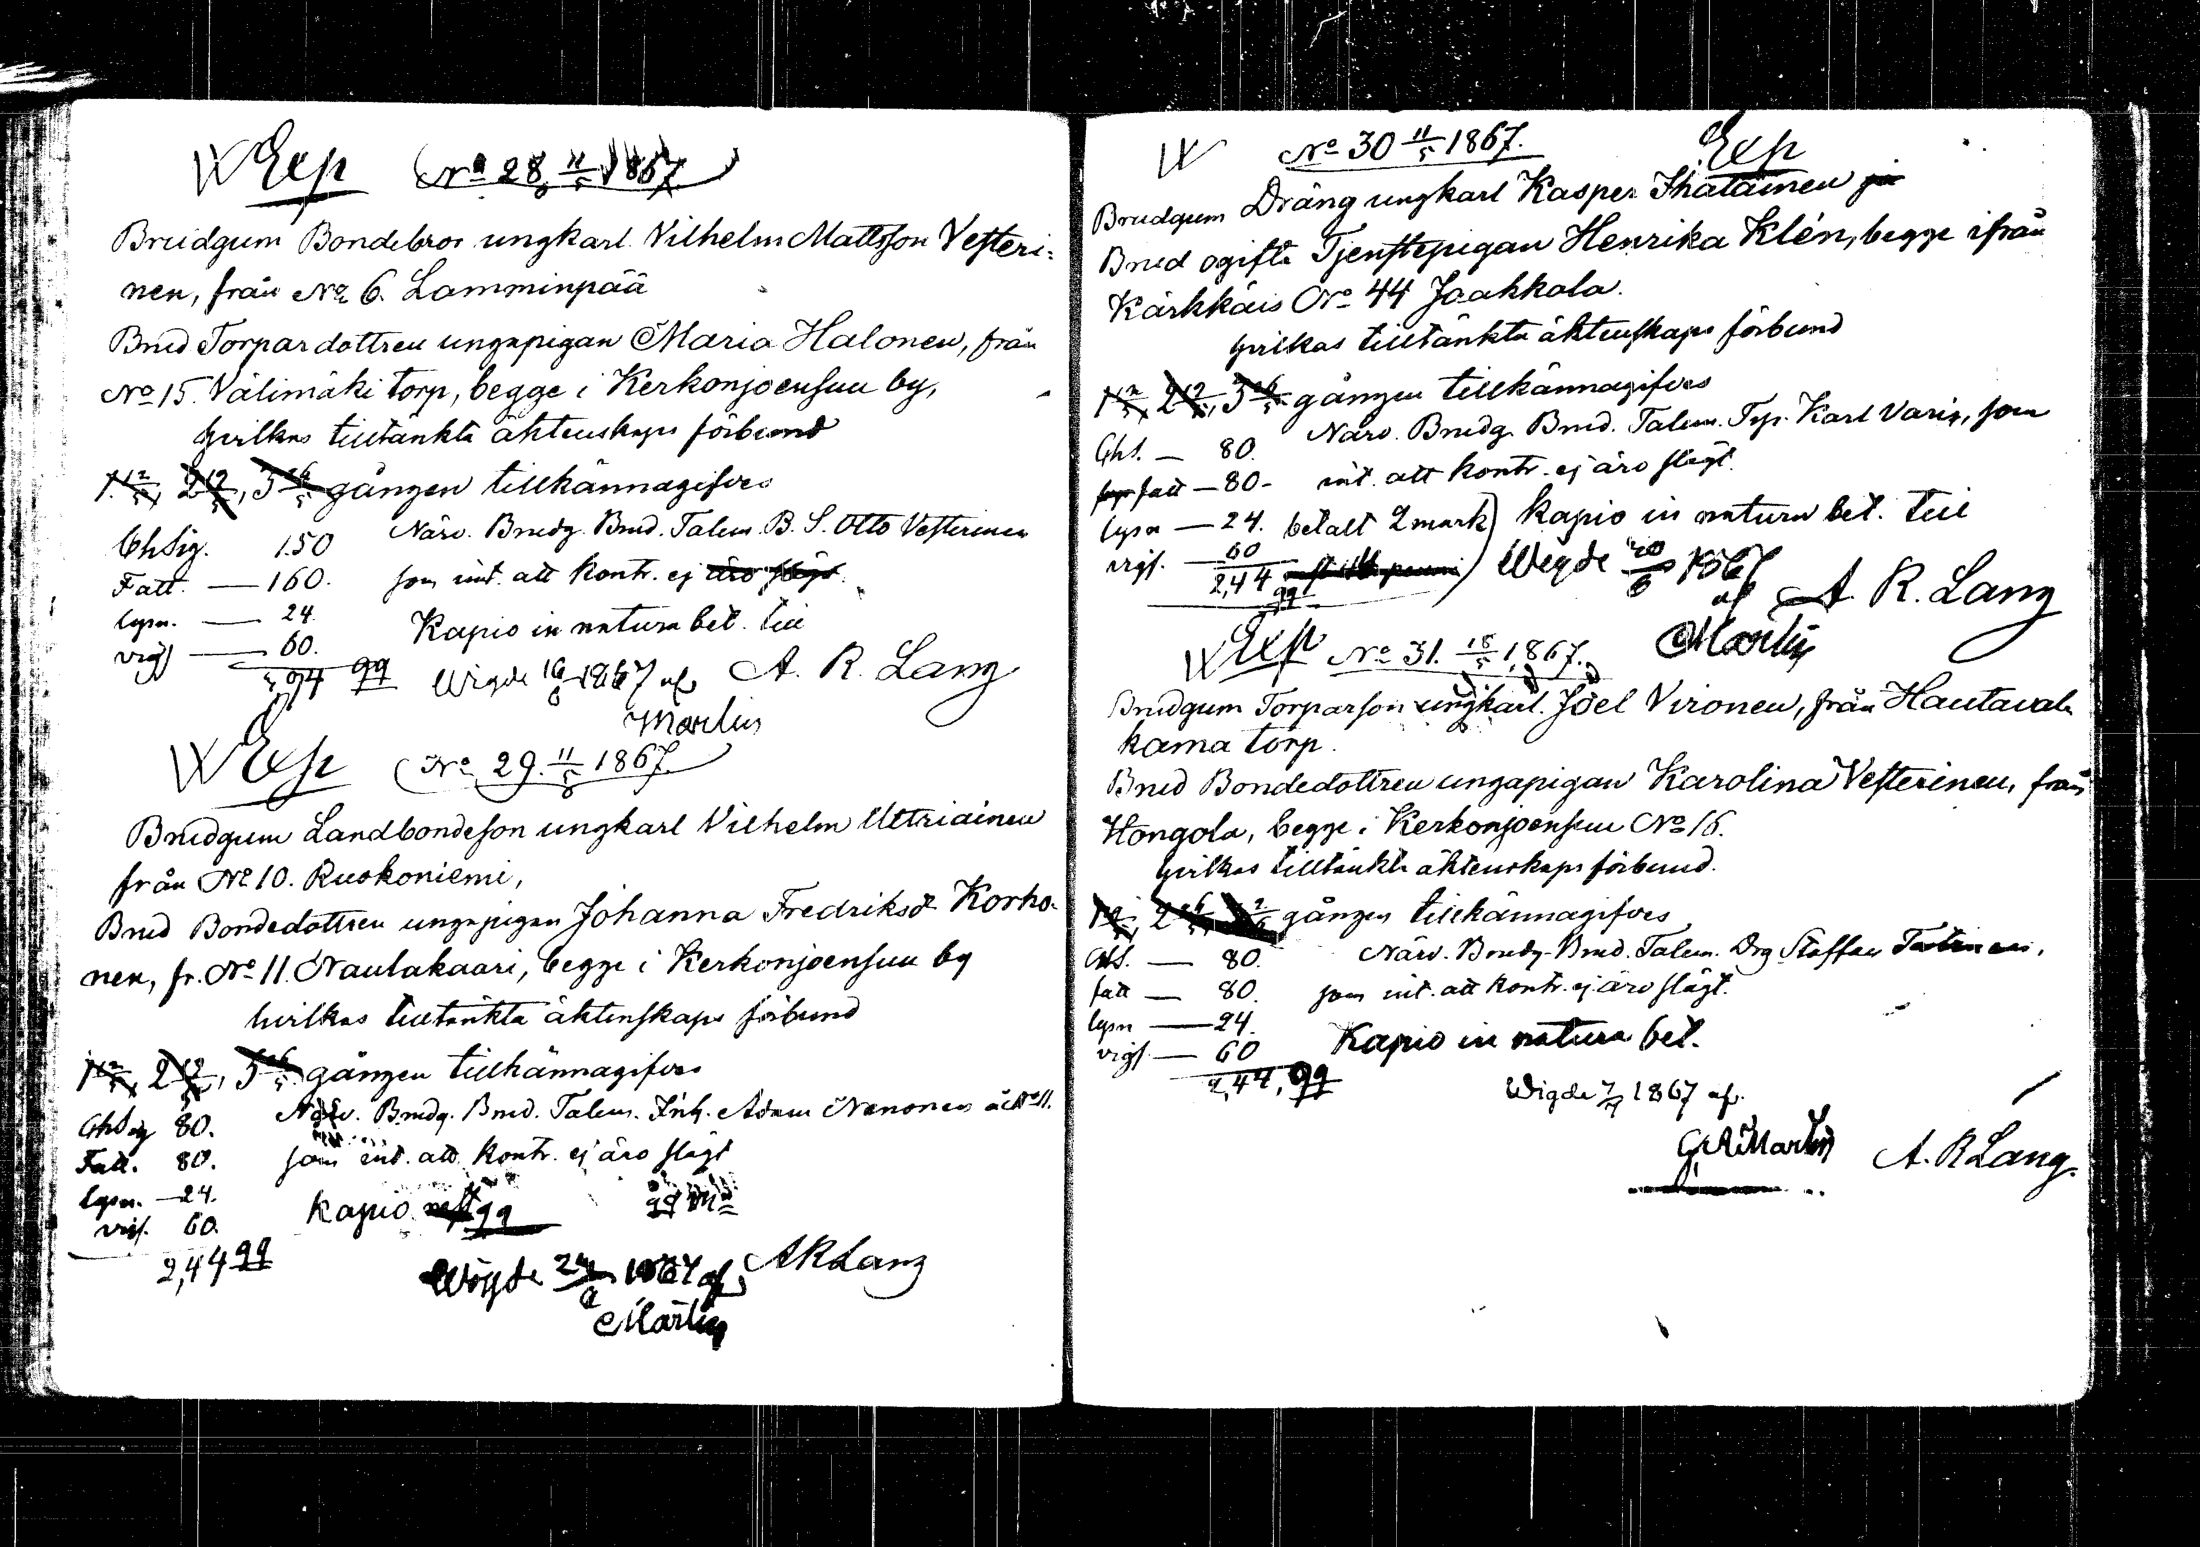 W Exp No 28 11/5 1867
Brudgum Bondebror ungkarl Vilhelm Mattsson Vesteri-
nen, från No 6. Lamminpää
Brud Torpardottren ungapigan Maria Halonen, från
No 15. Välimäki torp, begge i Kerkonjoensuu by,
hvilkas tilltänkta äktenskaps förbund
1 12/5, 2 19/5, 3 26/5 gången tillkännagifves
GhSig. 150 Närv. Brudg. Brud. Talem. B. S. Otto Vesterinen
Fatt. — 160. som int. att kontr. ej äro slägt.
lysn. — 24.
Kapio in natura bet. till
vigs — 60.
99 Wigde 16/6 1867 af A. R. Lang
Martin
W Exp No 29. 11/5 1867.
Brudgum Landbondeson ungkarl Vilhelm Uttriainen
från No 10. Ruokoniemi,
Brud Bondedottren ungapigan Johanna Fredriksd. Korho-
nen, fr. No 11. Naulakaari, begge i Kerkonjoensuu by
hvilkas tilltänkta äktenskaps förbund
1 12/5, 2 19/5, 3 26/5 gången tillkännagifves
GhSig 80. Närv. Brudg. Brud. Talem. Inh. Adam Nenonen å No 11.
Fatt. 80. som int. att kontr. ej äro slägt
lysn. — 24.
Kapio 99
vigs. 60.
2,44 99
Wigde 24/6 1867 af A R Lang
Martin
W No 30 11/5 1867. Exp
Brudgum Dräng ungkarl Kasper Ihatainen
Brud ogifta Tjenstepigan Henrika Klén, begge ifrån
Kärkkäis No 44 Jaakkola.
hvilkas tilltänkta äktenskaps förbund
1 12/5, 2 19/5, 3 26/5 gången tillkännagifves
Ghs. — 80. Närv. Brudg. Brud. Talem. Trp. Karl Varis, som
fatt — 80 - int. att kontr. ej äro slägt.
lysn — 24. betalt 2 mark) Kapio in natura bet. till
vigs. — 60
2,44 Wigde 20/6 1867
99 af A. R. Lang
Martin
W Exp No 31. 18/5 1867.
Brudgum Torparson ungkarl. Joel Vironen, från Hautaval-
kama torp.
Brud Bondedottren ungapigan Karolina Vesterinen, från
Hongola, begge i Kerkonjoensuu No 16.
hvilkas tilltänkta äktenskaps förbund.
1 19/5, 2 26/5, 3 2/6 gången tillkännagifves
Ghs. — 80. Närv. Brudg. Brud. Talem. Drg Staffan
fatt — 80. som int. att kontr. ej äro slägt.
lysn — 24.
Kapio in natura bet.
vigs. — 60
2,44, 99
Wigde 7/7 1867 af.
Martin A. R Lang.